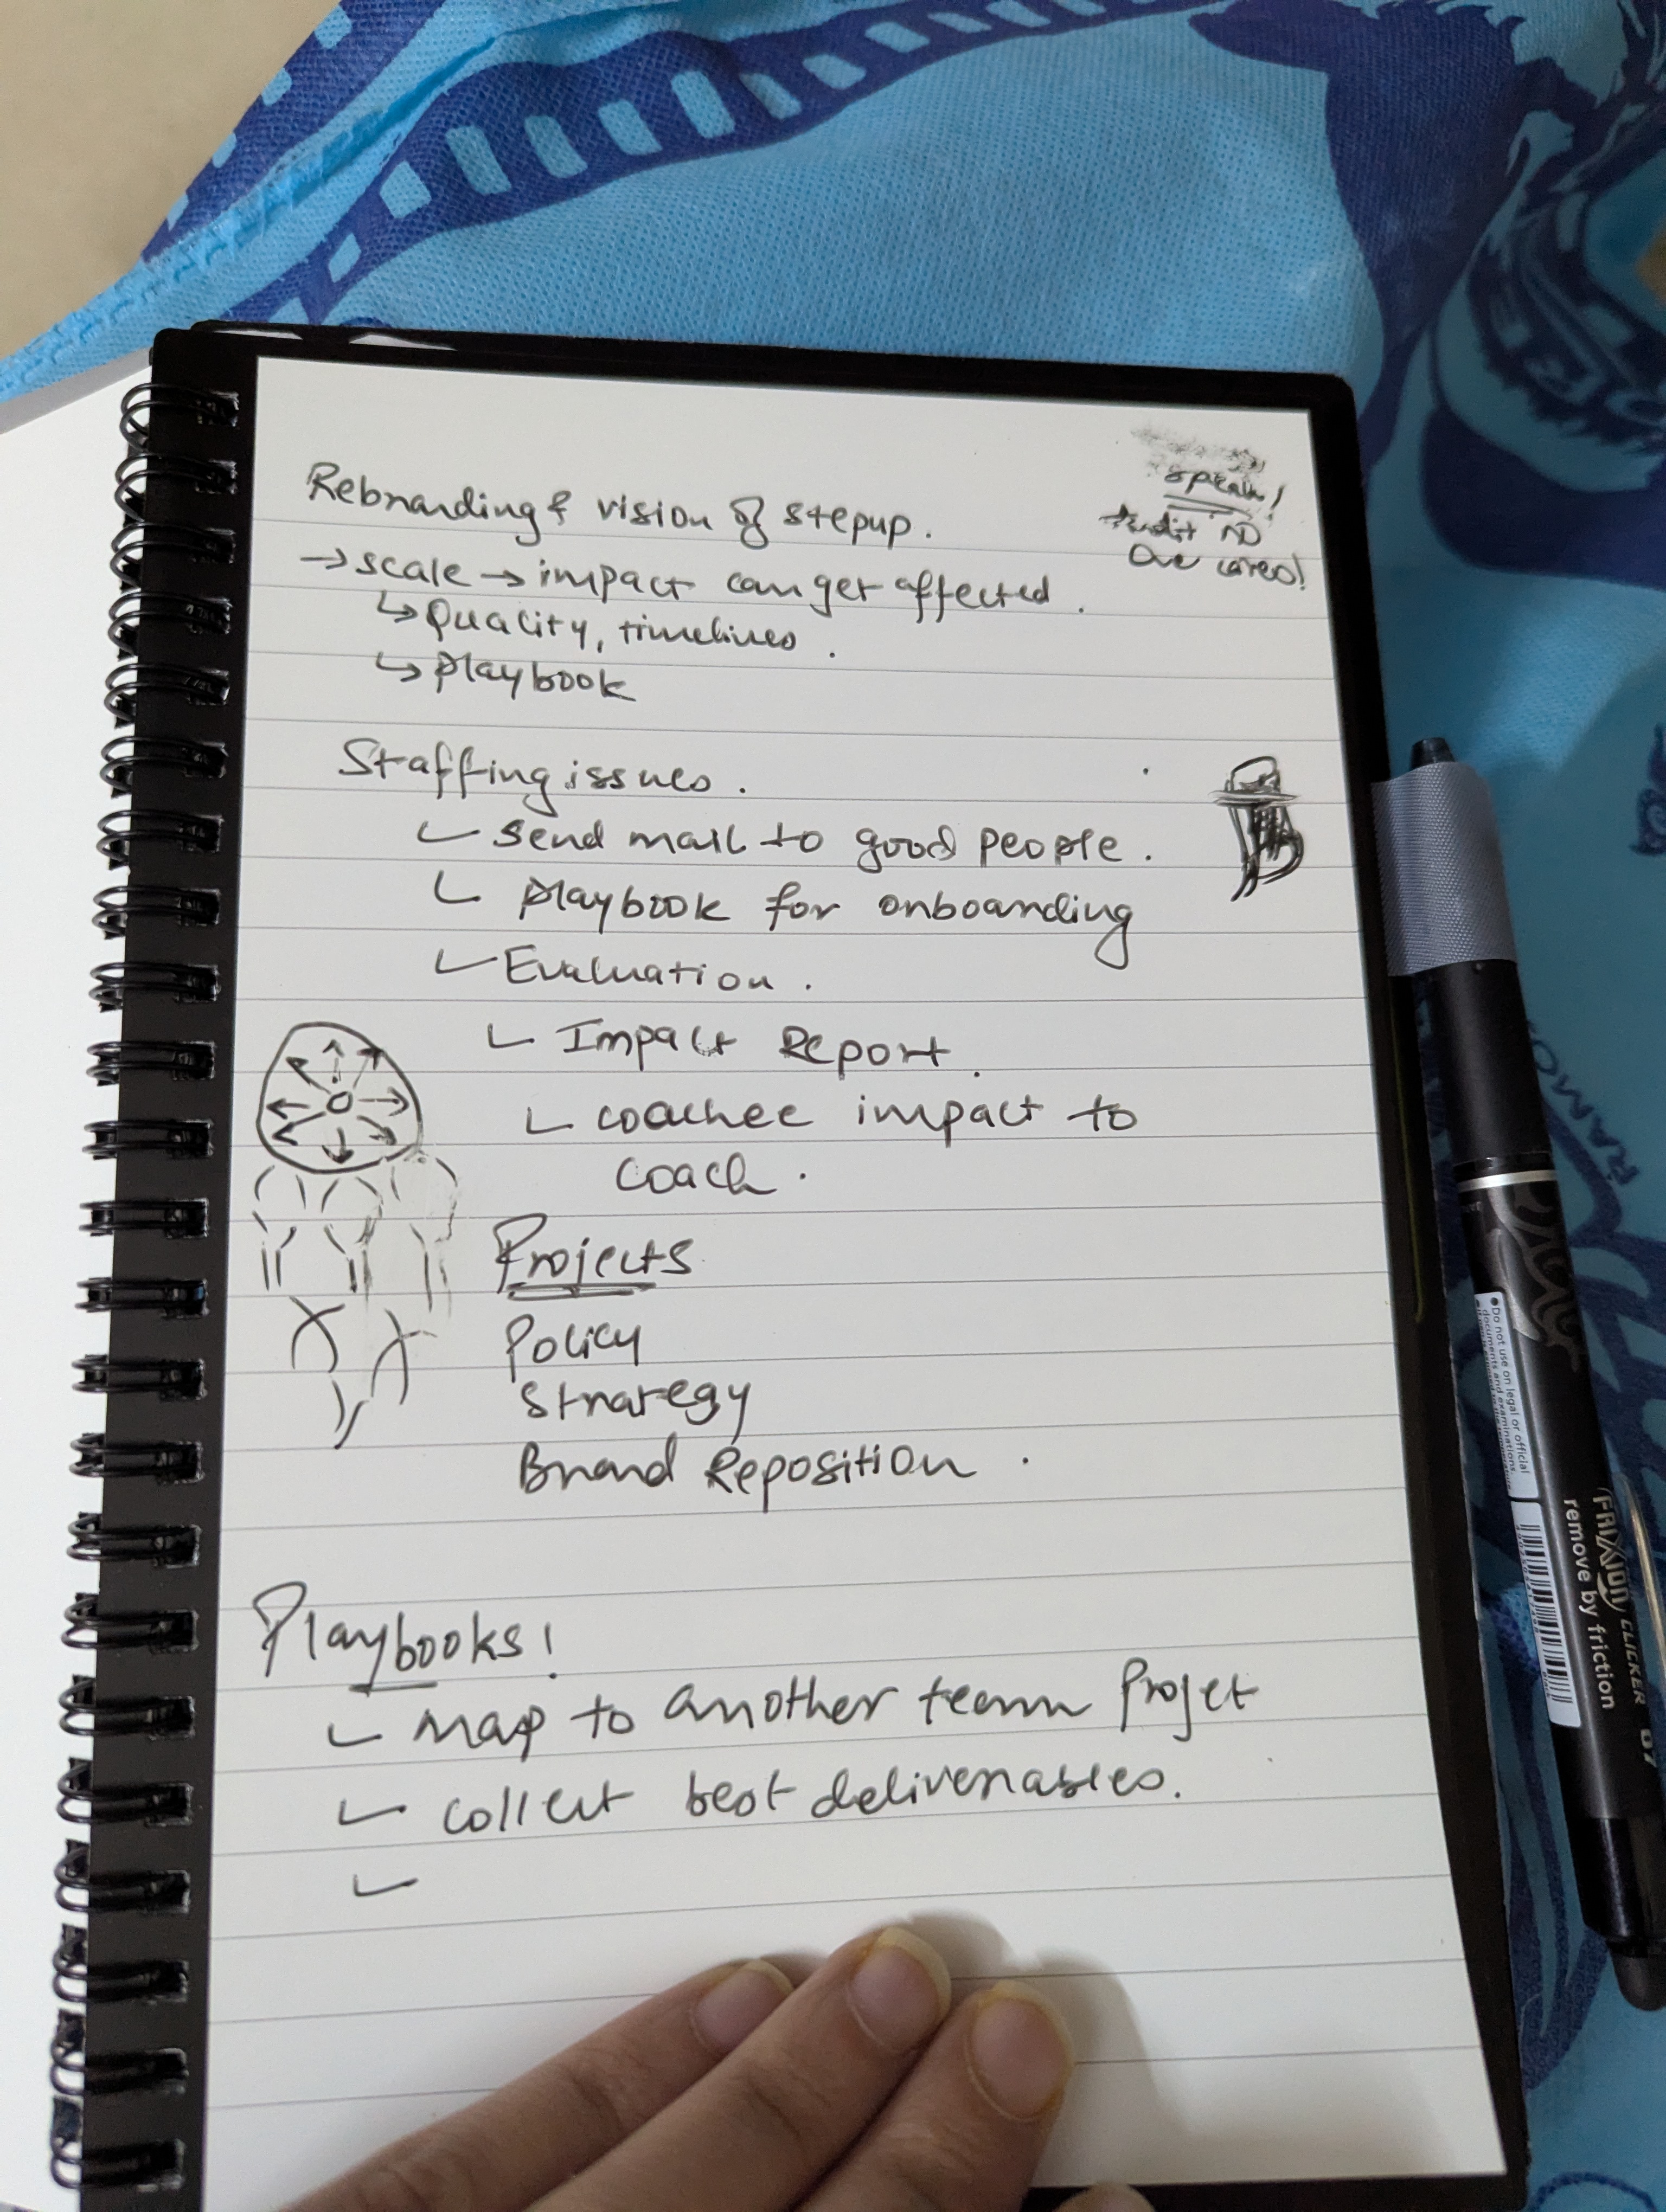 Rebranding & vision of stepup.
speak!
Audit no
one cares!
→ scale → impact can get affected.
↳ Quality, timelines.
↳ playbook
Staffing issues.
Send mail to good people.
playbook for onboarding
Evaluation.
Impact Report.
coachee impact to
coach.
Projects
Policy
Strategy
Brand Reposition.
Playbooks!
map to another team Projet
collect best deliverables.
RAMO
Do not use on legal or official
documents and examinations.
FRIXION CLICKER 07
remove by friction